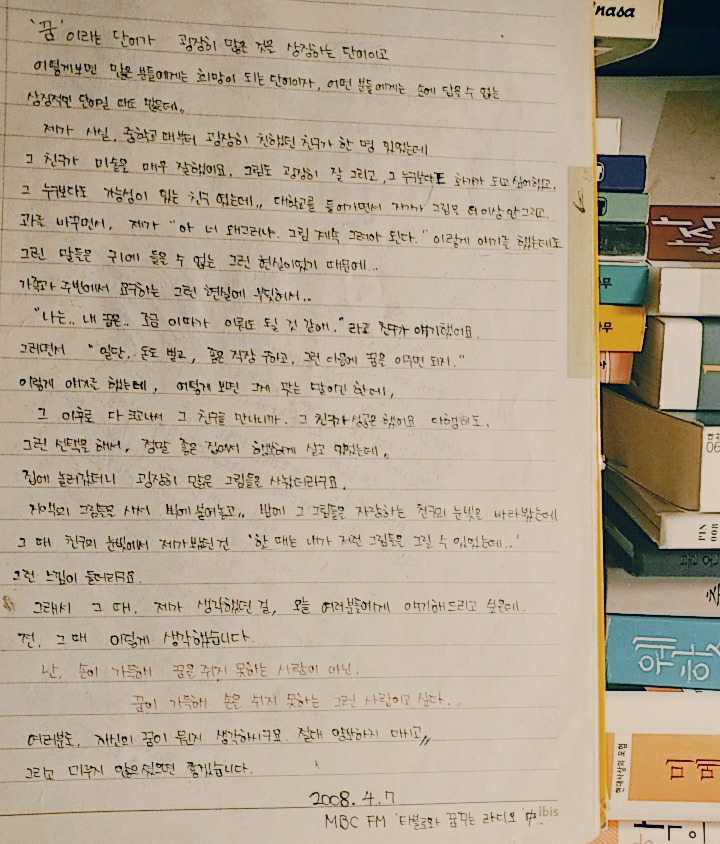 '꿈' 이라는 단어가 굉장히 많은 것을 상징하는 단어이고
어떻게보면 많은 분들에게는 희망이 되는 단어이자, 어떤 분들에게는 손에 닿을 수 없는
상징적인 단어일 때도 많은데,,
제가 사실, 중학교 때부터 굉장히 친했던 친구가 한 명 있었는데
그 친구가 미술을 매우 잘했어요. 그림도 굉장히 잘 그리고, 그 누구보다도 화가가 되고 싶어했고,
그 누구보다도 가능성이 있는 친구 였는데,, 대학교를 들어가면서 자기가 그림은 더이상 안 그리고
과를 바꾸면서, 제가 "아 너 왜그러냐. 그림 계속 그려야 된다." 이렇게 얘기를 했는데도
그런 말들은 귀에 들을 수 없는 그런 현실이었기 때문에...
가족과 주변에서 요구하는 그런 현실에 부딪혀서..
"나는.. 내 꿈은.. 조금 이따가 이뤄도 될 것 같애." 라고 친구가 얘기했어요.
그러면서 "일단, 돈도 벌고, 좋은 직장 구하고, 그런 다음에 꿈은 이루면 되지."
이렇게 얘기를 했는데, 어떻게 보면 그게 맞는 말이긴 한데,
그 이후로 다 크고나서 그 친구를 만나니까. 그 친구가 성공은 했어요 다행히도.
그런 선택을 해서, 정말 좋은 집에서 행복하게 살고 있었는데,
집에 놀러갔더니 굉장히 많은 그림들을 사놨더라구요.
지인의 그림들을 사서 벽에 붙여놓고,, 벽에 그 그림들을 자랑하는 친구의 눈빛을 바라봤는데
그 때 친구의 눈빛에서 제가 봤던 건 '한 때는 내가 저런 그림들을 그릴 수 있었는데..'
그런 느낌이 들더라구요.
그래서 그 때, 제가 생각했던 걸, 오늘 여러분들에게 얘기해드리고 싶은데.
전, 그 때 이렇게 생각했습니다.
난, 손이 가득해 꿈을 쥐지 못하는 사람이 아닌,
꿈이 가득해 손을 쥐지 못하는 그런 사람이고 싶다..
여러분도, 자신의 꿈이 뭔지 생각하시구요. 절대 양보하지 마시고,,
그리고 미루지 않으셨으면 좋겠습니다.
2008. 4. 7
MBC FM '타블로와 꿈꾸는 라디오' 中
ibis
nasa
무
무
06
PIN 008
웬
하
현대사상의 모험
미메